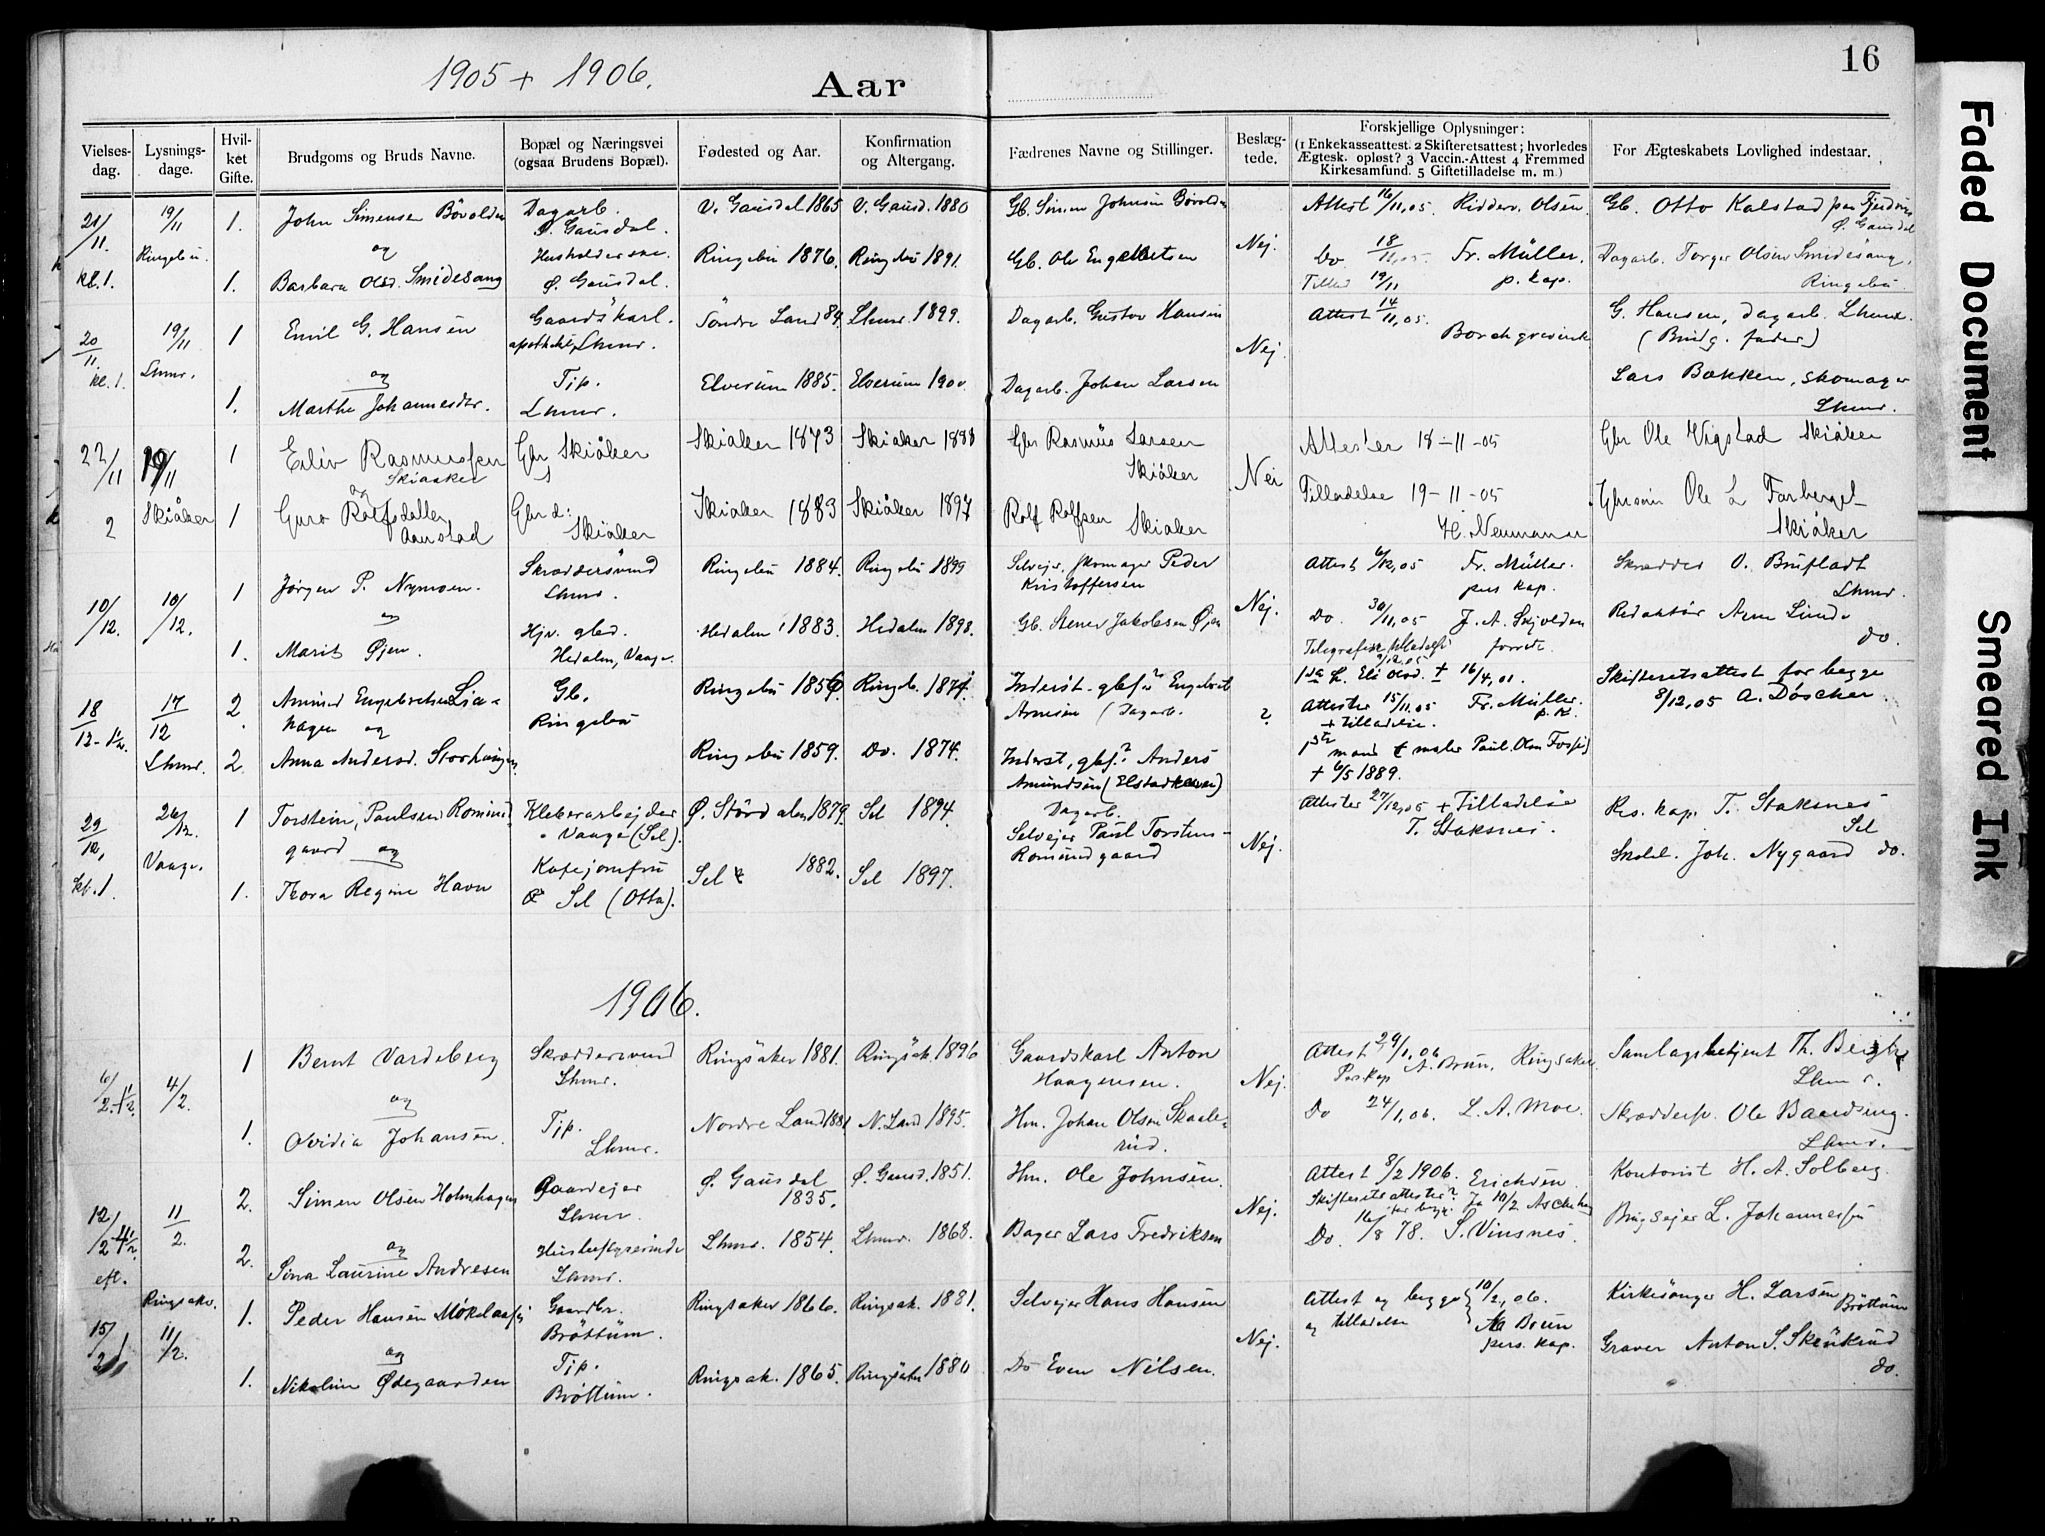 1905 + 1906.
Aar
16
Vielses-dag.
Lysnings-dage.
Hvil-ket Gifte.
Brudgoms og Bruds Navne.
Bopæl og Næringsvei (ogsaa Brudens Bopæl).
Fødested og Aar.
Konfirmation og Altergang.
Fædrenes Navne og Stillinger.
Beslæg-tede.
Forskjellige Oplysninger:
(1 Enkekasseattest. 2 Skifteretsattest; hvorledes
Ægtesk. opløst? 3 Vaccin.-Attest 4 Fremmed
Kirkesamfund. 5 Giftetilladelse m. m.)
For Ægteskabets Lovlighed indestaar.
21/11. kl. 1. 19/11 Ringebu.
1. John Simensen Bövolden Dagarb. Ø. Gausdal. V. Gausdal 1865 V. Gausd. 1880 Gb. Simen Johnsen Bövolden Nej. Attest 16/11,05. Ridderv. Olsen. Gb. Otto Kalstad Ø. Gausdal
og
1. Barbara Olsd. Smidesang Husholderske. Ø. Gausdal. Ringebu 1876. Ringebu 1891. Gb. Ole Engebretsen Do 18/11,05. Fr. Müller. p. kap. Tillad 19/11 Dagarb. Torger Olsen Smidesang, Ringebu.
20/11. kl. 1. 19/11 Lhmr.
1 Emil G. Hansen Gaardskarl. apotheket, Lhmr. Söndre Land 84. Lhmr. 1899. Dagarb. Gustav Hansen Nej. Attest 14/11,05. Borchgrevink G. Hansen, Dagarb. Lhmr. (Brudg. fader)
og
1. Marthe Johannesdtr. Tjp. Lhmr. Elverum 1885. Elverum 1900. Dagarb. Johan Larsen Lars Bakken, skomager Lhmr.
22/11 2 19/11 Skiåker
1 Eiliv Rasmussen Skiaaker Gbr Skiåker Skiaker 1873 Skiaker 1888 Gbr Rasmus Larsen Skiåker Nei Attester 18-11-05 Gbr Ole Vigstad Skiåker
og
1 Guro Rolfsdatter Aanstad Gbr d: Skiåker Skiaker 1883 Skiåker 1897 Rolf Rolfsen Skiaker Tilladelse 19-11-05 H. Neumann Gbrsøn Ole L Forberget Skiåker
10/12. 10/12.
1 Jørgen P. Nymoen. Skræddersvend Lhmr. Ringebu 1884. Ringebu 1899 Selvejer, skomager Peder Kristoffersen Nej. Attest 6/12,05 Fr. Müller. pers kap. Skrædder O. Brufladt Lhmr.
og
1. Marit Øjen. Hjv. gbd. Hedalen, Vaage. Hedalen 1883. Hedalen 1898. Gb. Stener Jakobsen Øjen Do. 30/11,05 J. A. Skjolden Redaktør Arne Linde do.
18/12 17/12 Lhmr.
2. Amund Engebretsen Lia-hagen og Gb. Ringebu Ringebu 1856. Ringeb. 1871. Inderst Engebret Arnesen (Dagarb. ? 16/4,01. Attester 15/11,05 + tilladelse. Fr. Müller. p. k. Skifteretsattest for begge 8/12,05 A. Döscher.
2. Anna Andersd. Storhaugen. Ringebu 1859. Do. 1874. Inderst, Anders Amundsen Dagarb. 1ste mand maler Paul Olsen † 6/5 1889.
29/12, kl. 1. 26/12. Vaage.
1 Torstein Paulsen Romund-gaard og Kleberarbejder Vaage (Sel). Ø. Stördalen 1879. Sel 1894. Selvejer Paul Torstens- Romundgaard Nej. Attester 27/12,05 + Tilladelse T. Staksnes. Res. kap. T. Staksnes Sel
1. Thora Regine Havn Kafejomfru Sel (Otta). Sel 1882. Sel 1897. Joh. Nygaard do.
1906.
6/2 4/2.
1 Bernt Vardeberg Skræddersvend Lhmr. Ringsaker 1881. Ringsak. 1896 Gaardskarl Anton Haagensen. Nej. Attest 29/1,06 A. Brun, Ringsaker. Pers kap Samlagsbetjent Th. Lhmr.
og
1. Ovidia Johansen. Tjp. Lhmr. Nordre Land 1881 N. Land 1895. Hm. Johan Olsen Skaale-rud. Do 24/1,06. L. A. Moe. Skræddersv. Ole Baardseng. Lhmr.
12/2 eft. 11/2.
2. Simen Olsen Holmhagen Gaardejer Lhmr. Ø. Gausdal 1835. Ø. Gausd. 1851. Hm. Ole Johnsen. Nej. Attest 8/2 1906. Erichsen. Skifteretsattester? Ja 10/2 for begge Kontorist H. A. Solberg.
og
2. Sina Laurine Andresen Husbestyrerinde Lhmr. Lhmr. 1854. Lhmr. 1868. Bager Lars Fredriksen Do. 16/8 78. S. Vinsnes. L. Johannessen
15/2 Ringsaker. 11/2.
1. Peder Hansen Gaardbr. Bröttum. Ringsaker 1866. Ringsak. 1881. Selvejer Hans Hansen Nej. Attest og begge og tilladelse 10/2,06. A Brun pers. kap. Kirkesanger H. Larsen Bröttum
og
1. Nikoline Ødegaarden Tjp. Bröttum. Ringsak. 1865. Ringsaker 1880 Do Even Nilsen. Graver Anton S. Skenkrud do.
Faded Document
Smeared Ink